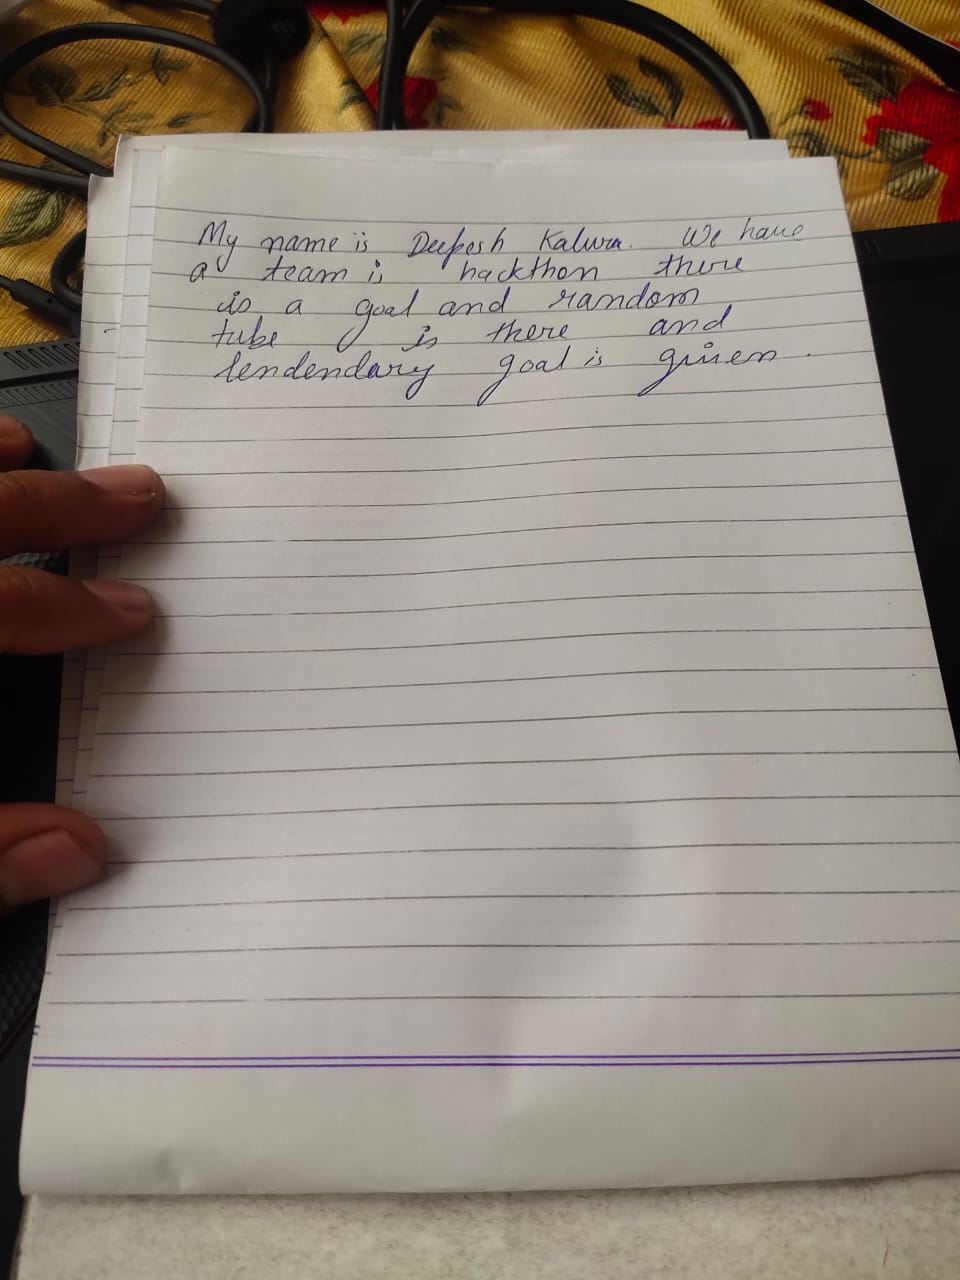 My name is Deepesh Kalura. We have
a team is hackthon there
is a goal and random
tube is there and
lendendary goal is given.